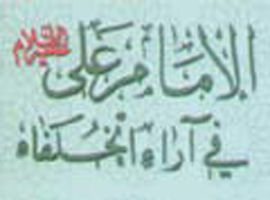 الإمام علي عليه السلام
في آراء الخلفاء